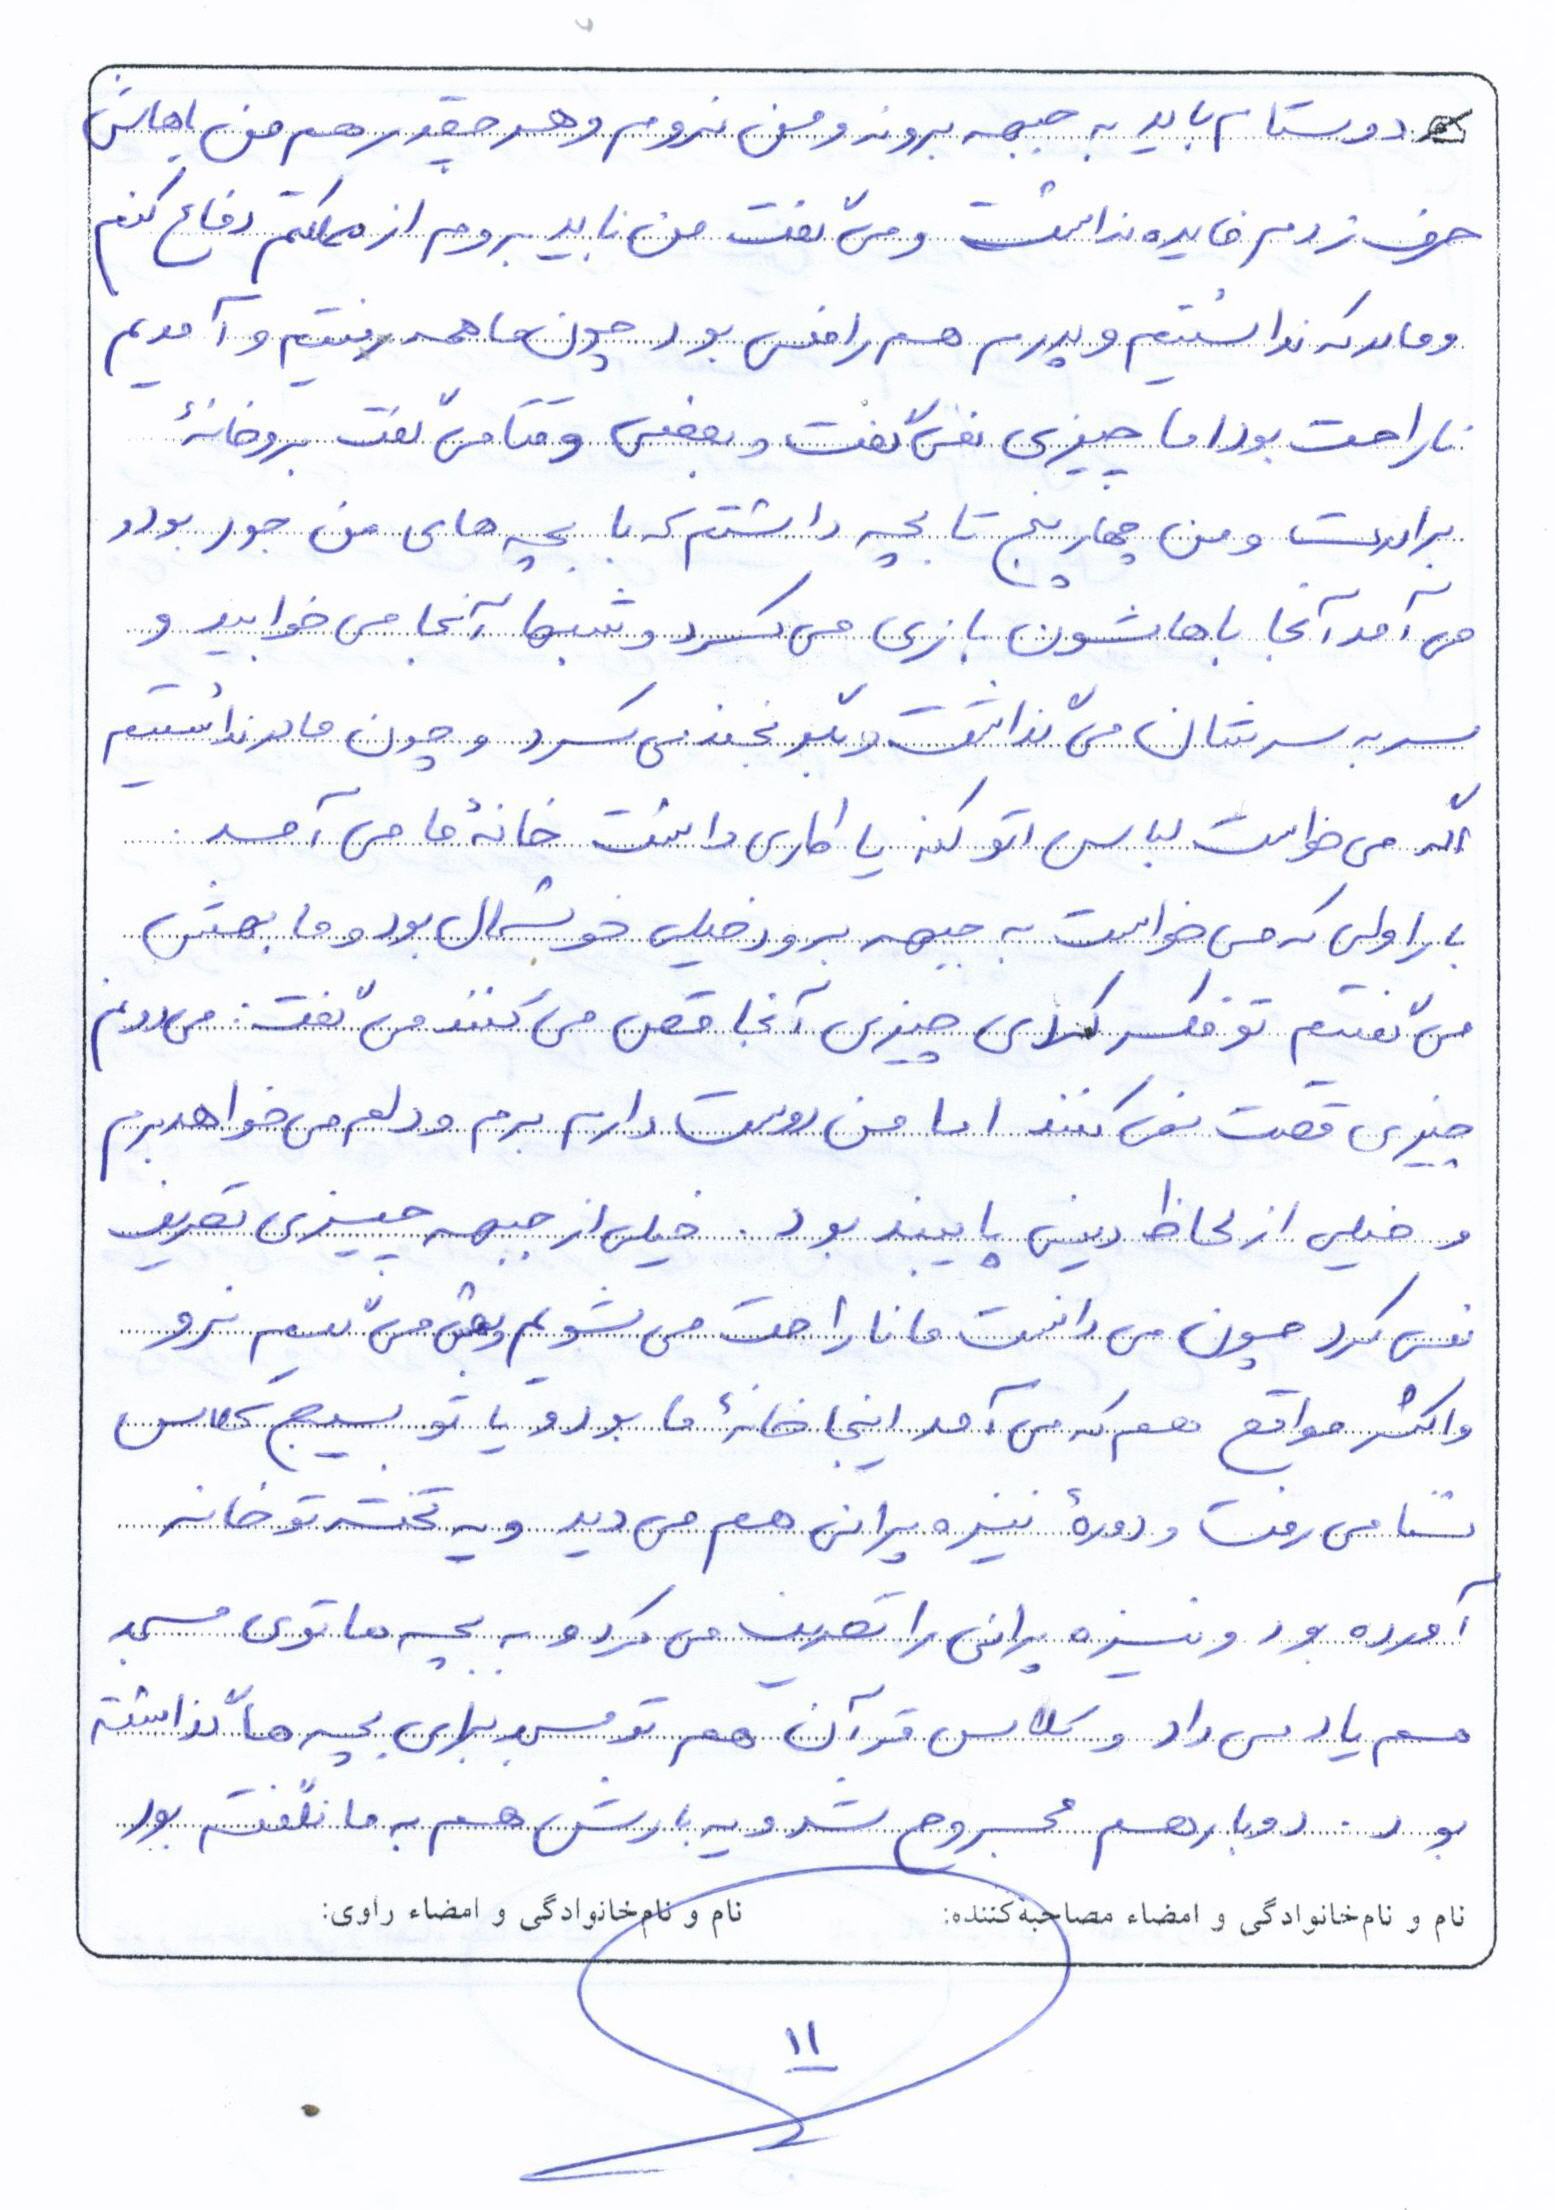 دوستام باید به جبهه بروند و من نروم و هر چقدر هم من باهاش
حرف زدم فایده نداشت و می گفت من باید بروم از مملکتم دفاع کنم
و مادر که نداشتیم و پدرم هم راضی بود چون ما همه رفتیم و آمدیم
ناراحت بود اما چیزی نمی گفت و بعضی وقتا می گفت برو خانهٔ
برادرت و من چهار پنج تا بچه داشتم که با بچه های من جور بود و
می آمد آنجا باهاشون بازی می کرد و شبها آنجا می خوابید و
سر به سرشان می گذاشت و بگو بخند می کرد و چون مادر نداشتیم
اگه می خواست لباس اتو کنه یا کاری داشت خانهٔ ما می آمد.
بار اولی که می خواست به جبهه برود خیلی خوشحال بود و ما بهش
می گفتیم تو فکر کردی چیزی آنجا قصت می کنند می گفت: می دونم
چیزی قصت نمی کنند اما من دوست دارم برم و دلم می خواهد برم
و خیلی از لحاظ دینی پایبند بود. خیلی از جبهه چیزی تعریف
نمی کرد چون می دانست ما ناراحت می شویم و بهش می گیم نرو
و اکثر مواقع هم که می آمد اینجا خانهٔ ما بود و یا تو بسیج کلاس
شنا می رفت و دورهٔ نیزه پرانی هم می دید و یه تخته تو خانه
آورده بود و نیزه پرانی را تمرین می کرد و به بچه ها توی مسجد
هم یاد می داد و کلاس قرآن هم تو مسجد برای بچه ها گذاشته
بود. دوبار هم مجروح شد و یه بارش هم به ما نگفته بود
نام و نام‌خانوادگی و امضاء مصاحبه‌کننده: نام و نام‌خانوادگی و امضاء راوی:
۱۱